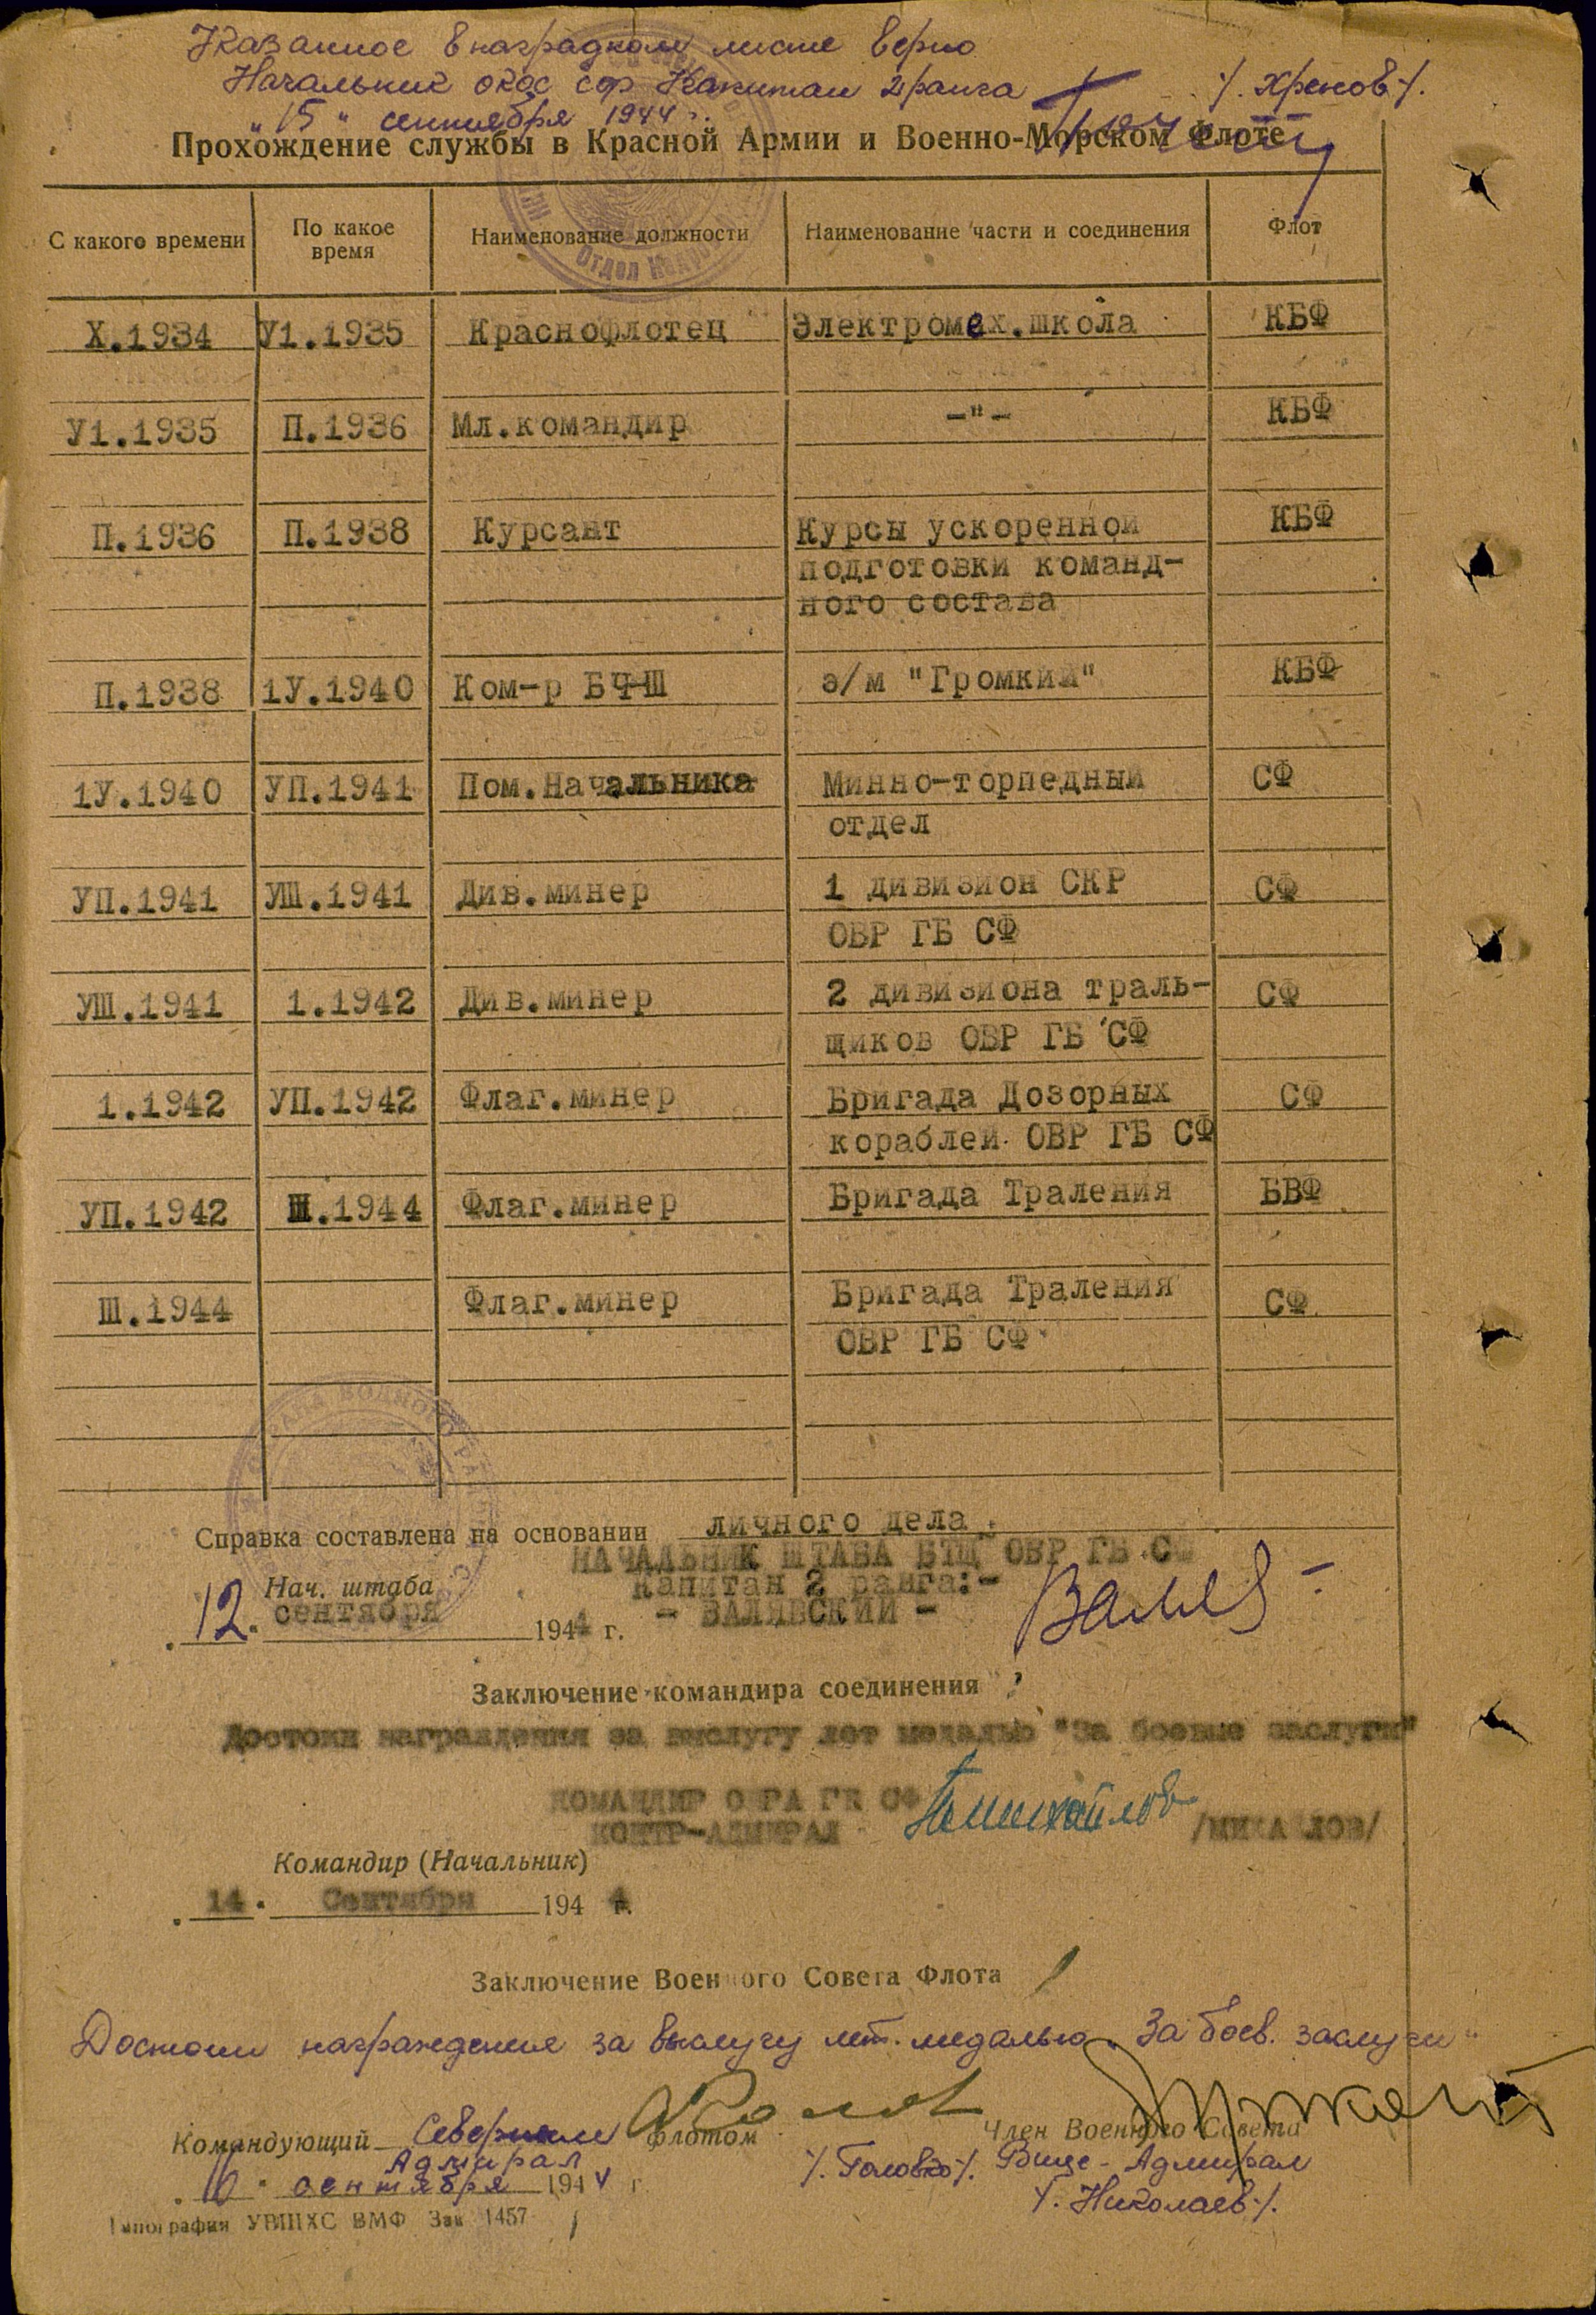 Казанное в наградном листе верно
Начальник окос сф Капитан 2 ранга /. Хренов/.
"15" сентября 1944 г.
Прохождение службы в Красной Армии и Военно-Морском Флоте
С какого времени По какое время Наименование должности Наименование части и соединения Флот
Х.1934 У1.1935 Краснофлотец Электромех.школа КБФ
У1.1935 П.1936 Мл.командир -"- КБФ
П.1936 П.1938 Курсант Курсы ускоренной КБФ
подготовки команд-
ного состава
П.1938 1У.1940 Ком-р БЧ-Ш э/м "Громкий" КБФ
1У.1940 УП.1941 Пом.Начальника Минно-торпедный СФ
отдел
УП.1941 УШ.1941 Див.минер 1 дивизион СКР СФ
ОВР ГБ СФ
УШ.1941 1.1942 Див.минер 2 дивизиона траль- СФ
щиков ОВР ГБ СФ
1.1942 УП.1942 Флаг.минер Бригада Дозорных СФ
кораблей ОВР ГБ СФ
УП.1942 Ш.1944 Флаг.минер Бригада Траления БВФ
Ш.1944 Флаг.минер Бригада Траления СФ
ОВР ГБ СФ
Справка составлена на основании личного дела.
НАЧАЛЬНИК ШТАБА БТЩ ОВР ГБ СФ
Нач. штаба Капитан 2 ранга:-
"12" сентября 1944 г. - ВАЛЯВСКИЙ -
Заключение командира соединения
Достоин награждения за выслугу лет медалью "За боевые заслуги"
КОМАНДИР ОВРА ГБ СФ
КОНТР-АДМИРАЛ /МИХАЙЛОВ/
Командир (Начальник)
"14" Сентября 1944 г.
Заключение Военного Совета Флота
Достоин награждения за выслугу лет. медалью "За боев. заслуги"
Командующий Северным флотом Член Военного Совета
Адмирал /. Головко/. Вице-Адмирал
сентября 1944 г. /. Николаев/.
Типография УВИНХС ВМФ Зак 1457